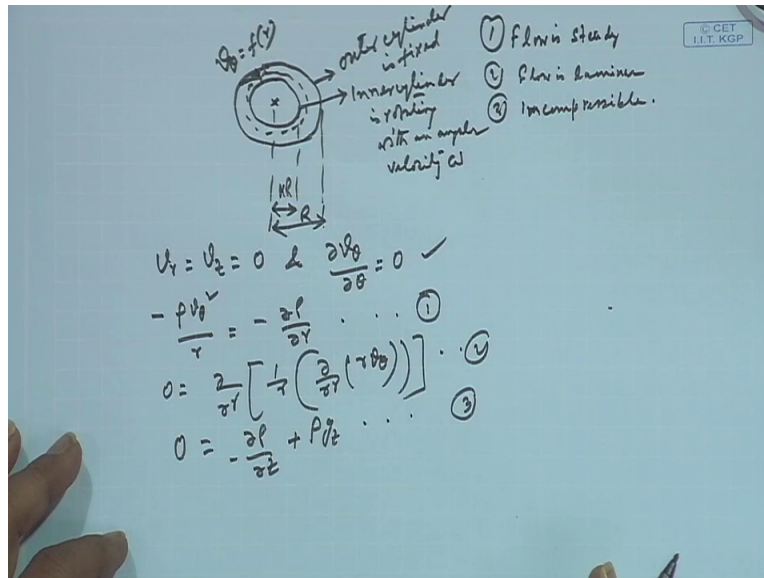 v_θ = f(r)
outer cylinder
is fixed
Inner cylinder
is rotating
with an angular
velocity ω
① flow is steady
② flow is laminar
③ incompressible.
© CET
I.I.T. KGP
×
κR
R
v_r = v_z = 0 & ∂v_θ/∂θ = 0 ✓
- ρv_θ²/r = - ∂P/∂r . . . ①
0 = ∂/∂r [ 1/r ( ∂/∂r (r v_θ) ) ] . . ②
0 = - ∂P/∂z + ρg_z . . . ③